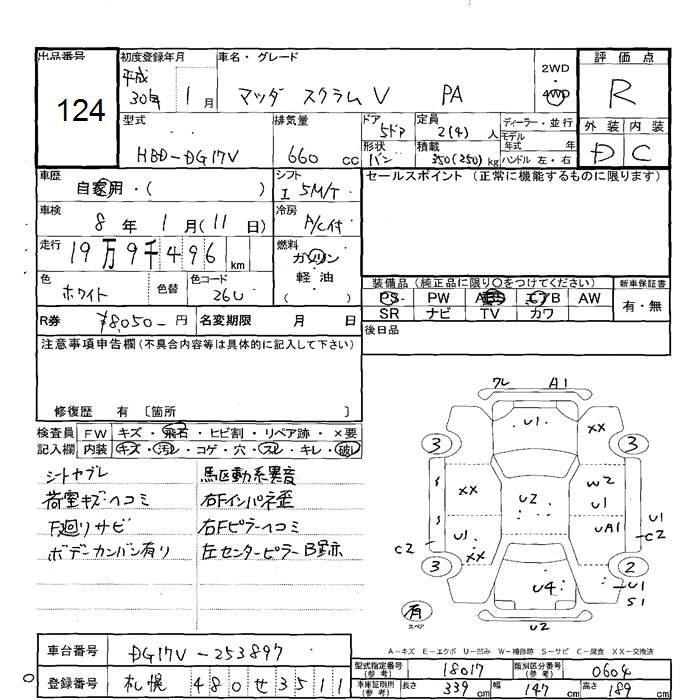 出品番号 初度登録年月 車名・グレード 評価点
124
平成 30年 1月
マツダ スクラムV PA
2WD 4WD
R
外装 内装
D C
型式 排気量 ドア 定員 ディーラー・並行
HBD-DG17V 660 cc 5ドア 2(4)人
モデル年式 年
形状 バン 積載 350(250)kg ハンドル 左・右
車歴 自家用・( )
シフト I 5M/T
セールスポイント (正常に機能するものに限ります)
車検 8年 1月(11日)
冷房 A/C付
走行 19万9千496km
燃料 ガソリン・軽油
色 ホワイト 色替 色コード 26U
装備品(純正品に限り○をつけてください) 新車保証書
PS PW ABS エアB AW 有・無
SR ナビ TV カワ
R券 ¥8,050-円 名変期限 月 日
後日品
注意事項申告欄(不具合内容等は具体的に記入して下さい)
修復歴 有 〔箇所 〕
検査員 FW キズ・飛石・ヒビ割・リペア跡・×要
記入欄 内装 キズ・汚レ・コゲ・穴・スレ・キレ・破レ
シートヤブレ 駆動系異音
荷室キズ・ヘコミ 右Fインパネ歪
F廻りサビ 右Fピラーヘコミ
ボデーカンバン有り 左センターピラーB跡
ワレ A1
U1
3 XX 3
XX U2 W2
U1
U1 XX UA1
C2 U1 C2
3 U4 2
U1 S1
有 スペア
U2
A-キズ E-エクボ U-凹み W-補修跡 S-サビ C-腐食 XX-交換済
車台番号 DG17V-253897
型式指定番号(参考) 18017 類別区分番号(参考) 0604
登録番号 札幌 480せ3511
車庫証明用(参考) 長さ 339cm 幅 147cm 高さ 189cm